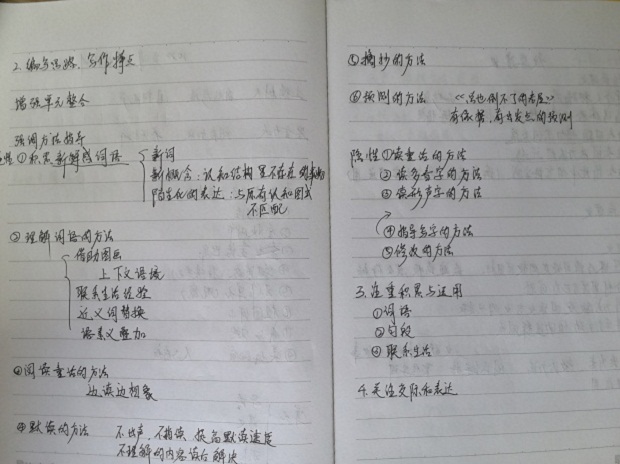 2.编写思路、写作特点
增强单元整合
强调方法指导
①积累新鲜感词语
新词
新概念:认知结构里不存在
陌生化的表达:与原有认知图式
不匹配
②理解词语的方法
借助图画
上下文语境
联系生活经验
近义词替换
语素义叠加
③阅读童话的方法
边读边想象
④默读的方法 不出声、不指读、提高默读速度
不理解的内容读后解决
⑤摘抄的方法
⑥预测的方法 《总也倒不了的老屋》
有依据、有出处的预测
隐性①读童话的方法
②读多音字的方法
③读形声字的方法
④指导多字的方法
⑤修改的方法
3.注重积累与运用
①词语
②句段
③联系生活
4.关注交际和表达